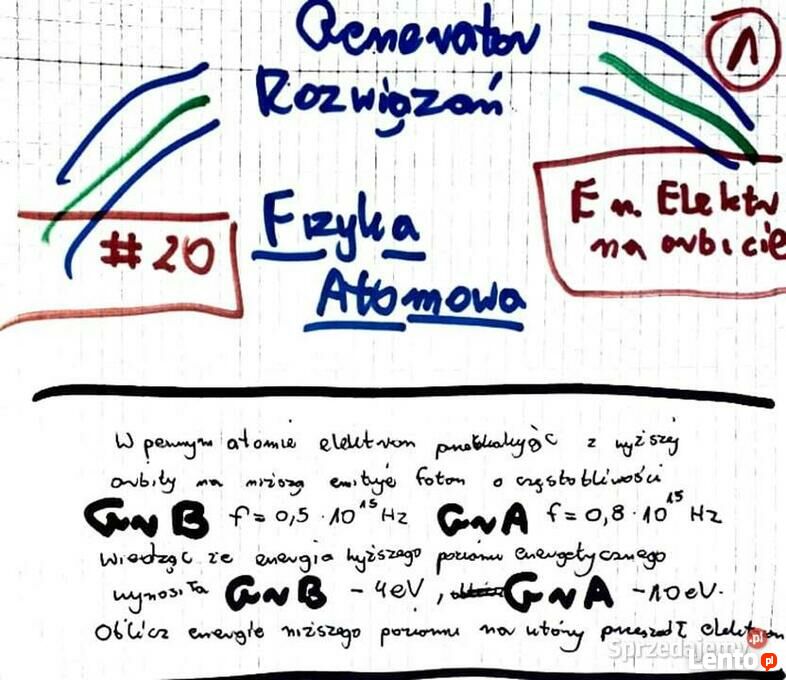 Generator
Rozwiązań
1
#20
Fizyka
Atomowa
E n. Elektr
na orbicie
W pewnym atomie elektron przeskakując z wyższej
orbity na niższą emituje foton o częstotliwości
GrB f = 0,5 · 10¹⁵ Hz GrA f = 0,8 · 10¹⁵ Hz
Wiedząc że energia wyższego poziomu energetycznego
wynosiła GrB - 4eV, GrA -10eV.
Oblicz energię niższego poziomu na który przeszedł elektron
Sprzedajemy.pl
Lento.pl